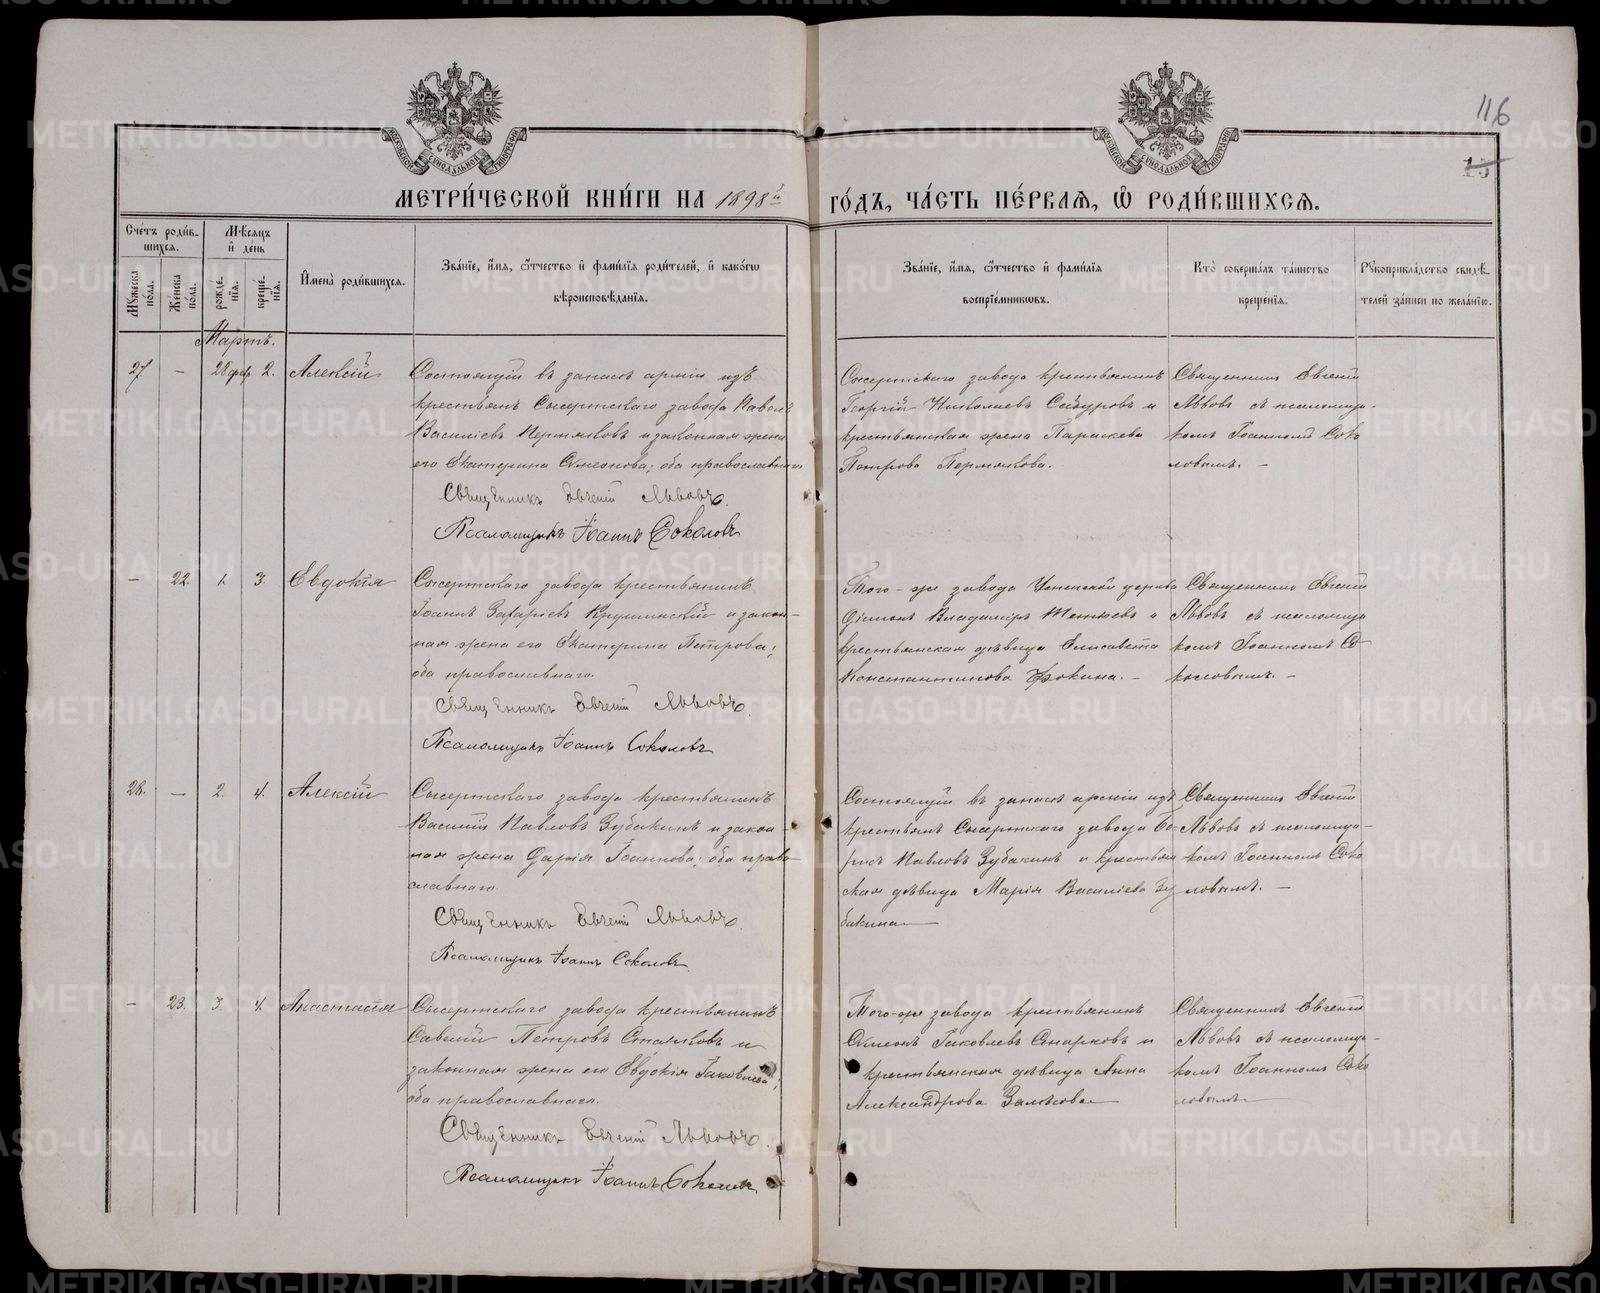 116
15
МЕТРИ́ЧЕСКОЙ КНИ́ГИ НА 1898й
ГО́ДЪ, ЧА́СТЬ ПЕ́РВАЯ, Ѡ РОДИ́ВШИХСЯ.
Сче́тъ роди́в-
шихся.
Мꙋ́жеска по́ла.
Же́нска по́ла.
Мѣ́сяцъ и҆ де́нь
рожде́-нїя.
креще́-нїя.
И҆мена̀ роди́вшихся.
Зва́нїе, и҆́мя, ѻ҆́тчество и҆ фами́лїя роди́телей, и҆ како́гѡ
вѣроисповѣ́данїя.
Зва́нїе, и҆́мя, ѻ҆́тчество и҆ фами́лїя
воспрїе́мникѡвъ.
Кто̀ соверша́лъ та́инство
креще́нїя.
Рꙋкоприкла́дство свидѣ́-
телей за́писи по жела́нїю.
Мартъ.
27. — 28 фев. 2. Алексій
Состоящій въ запасѣ арміи изъ
крестьянъ Сысертскаго завода Павелъ
Василіевъ Пермяковъ и законная жена
его Екатерина Симеонова; оба православнаго
Священникъ Евгеній Львовъ.
Псаломщикъ Іоаннъ Соколовъ
Сысертскаго завода крестьянинъ
Георгій Николаевъ и
крестьянская жена Параскева
Петрова Пермякова.
Священникъ Евгеній
Львовъ съ псаломщи-
комъ Іоанномъ Соко
ловымъ. —
— 22. 1. 3. Евдокія
Сысертскаго завода крестьянинъ
Іоаннъ Захаріевъ и закон-
ная жена его Екатерина Петрова;
оба православнаго.
Священникъ Евгеній Львовъ.
Псаломщикъ Іоаннъ Соколовъ
Того-же завода церкви
Діаконъ Владиміръ и
крестьянская дѣвица Елисавета
Константинова Фокина. —
Священникъ Евгеній
Львовъ съ псаломщи
комъ Іоанномъ Со
коловымъ. —
28. — 2. 4. Алексій
Сысертскаго завода крестьянинъ
Василій Павловъ Зубакинъ и закон-
ная жена Дарія Іоаннова; оба право-
славнаго.
Священникъ Евгеній Львовъ.
Псаломщикъ Іоаннъ Соколовъ
Состоящій въ запасѣ арміи изъ
крестьянъ Сысертскаго завода Бо-
рисъ Павловъ Зубакинъ и крестьян
ская дѣвица Марія Василіева Зу
бакина
Священникъ Евгеній
Львовъ съ псаломщи-
комъ Іоанномъ Соко
ловымъ. —
— 23. 3 4. Анастасія
Сысертскаго завода крестьянинъ
Савелій Петровъ и
законная жена его Евдокія Іаковлева;
оба православнаго.
Священникъ Евгеній Львовъ.
Псаломщикъ Іоаннъ Соколовъ
Того-же завода крестьянинъ
Симеонъ Іаковлевъ и
крестьянская дѣвица Анна
Александрова
Священникъ Евгеній
Львовъ съ псаломщи-
комъ Іоанномъ Соко
ловымъ
METRIKI.GASO-URAL.RU